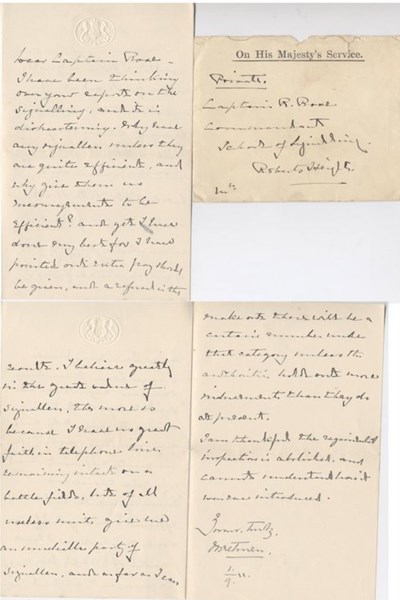 Dear Captain Rose -
I have been thinking
over your reports on the
signalling, and it is
disheartening. Why have
any signallers unless they
are quite efficient, and
why give them no
encouragement to be
efficient? and yet I have
done my best for I have
pointed out extra pay should
be given, and a refund is the
On His Majesty's Service.
Private.
Captain R. Rose
Commandant
School of Signalling.
Roberts Heights.
result. I believe greatly
in the great value of
signallers, the more so
because I have no great
faith in telephone lines
remaining intact on a
battle field. But of all
useless units give me
an inefficient party of
signallers, and as far as I can
make out there will be a
certain number under
that category unless the
authorities hold out more
inducements than they do
at present.
I am thankful the regimental
inspection is abolished and
cannot understand how it
was ever introduced.
Yours truly
Methuen.